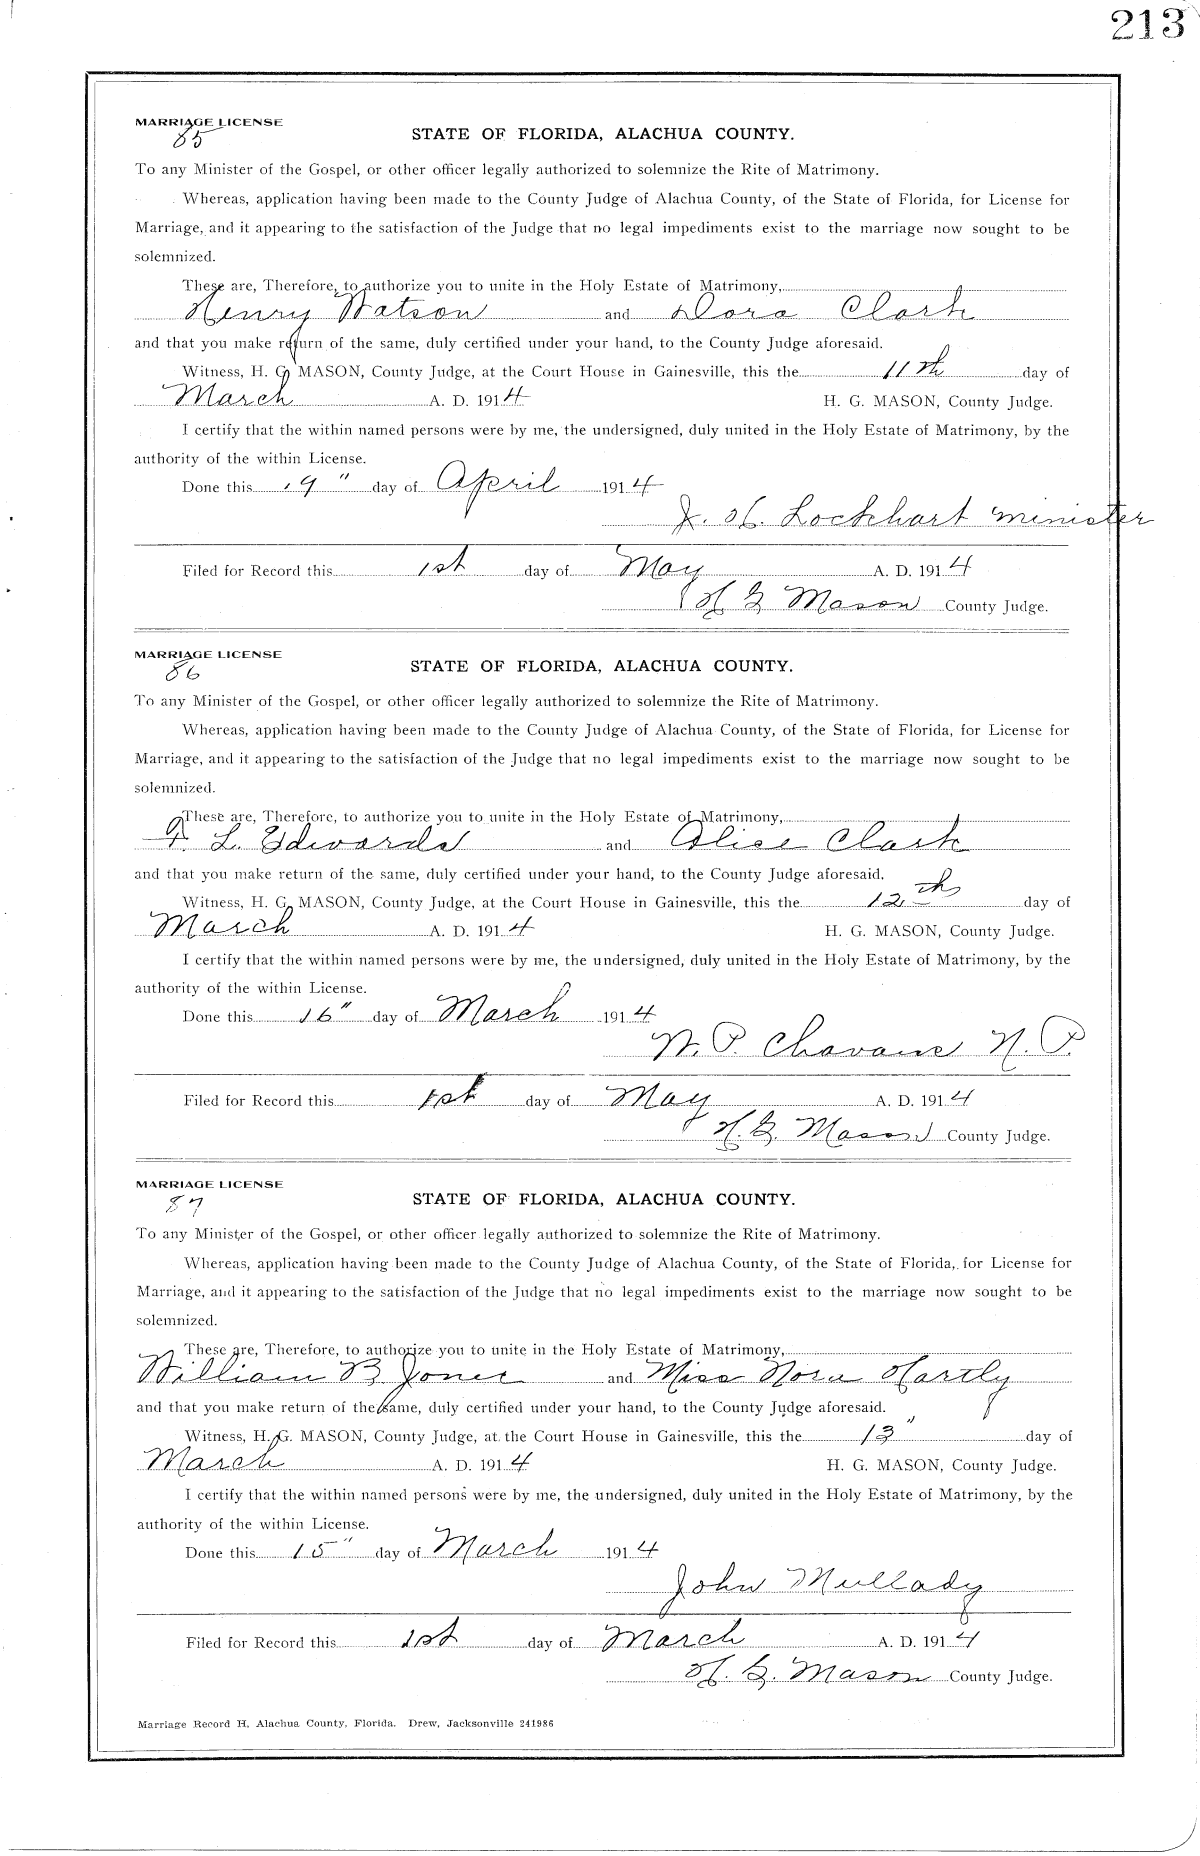 213
MARRIAGE LICENSE
85
STATE OF FLORIDA, ALACHUA COUNTY.
To any Minister of the Gospel, or other officer legally authorized to solemnize the Rite of Matrimony.
Whereas, application having been made to the County Judge of Alachua County, of the State of Florida, for License for
Marriage, and it appearing to the satisfaction of the Judge that no legal impediments exist to the marriage now sought to be
solemnized.
These are, Therefore, to authorize you to unite in the Holy Estate of Matrimony,
Henry Watson and Dora Clark
and that you make return of the same, duly certified under your hand, to the County Judge aforesaid.
Witness, H. G. MASON, County Judge, at the Court House in Gainesville, this the 11th day of
March A. D. 1914 H. G. MASON, County Judge.
I certify that the within named persons were by me, the undersigned, duly united in the Holy Estate of Matrimony, by the
authority of the within License.
Done this 19" day of April 1914
J. H. Lockhart Minister
Filed for Record this 1st day of May A. D. 1914
H G Mason County Judge.
MARRIAGE LICENSE
86
STATE OF FLORIDA, ALACHUA COUNTY.
To any Minister of the Gospel, or other officer legally authorized to solemnize the Rite of Matrimony.
Whereas, application having been made to the County Judge of Alachua County, of the State of Florida, for License for
Marriage, and it appearing to the satisfaction of the Judge that no legal impediments exist to the marriage now sought to be
solemnized.
These are, Therefore, to authorize you to unite in the Holy Estate of Matrimony,
L. Edwards and Alice Clark
and that you make return of the same, duly certified under your hand, to the County Judge aforesaid.
Witness, H. G. MASON, County Judge, at the Court House in Gainesville, this the 12th day of
March A. D. 1914 H. G. MASON, County Judge.
I certify that the within named persons were by me, the undersigned, duly united in the Holy Estate of Matrimony, by the
authority of the within License.
Done this 16" day of March 1914
W. P. N. P.
Filed for Record this 1st day of May A. D. 1914
H. G. Mason County Judge.
MARRIAGE LICENSE
87
STATE OF FLORIDA, ALACHUA COUNTY.
To any Minister of the Gospel, or other officer legally authorized to solemnize the Rite of Matrimony.
Whereas, application having been made to the County Judge of Alachua County, of the State of Florida, for License for
Marriage, and it appearing to the satisfaction of the Judge that no legal impediments exist to the marriage now sought to be
solemnized.
These are, Therefore, to authorize you to unite in the Holy Estate of Matrimony,
William B. Jones and Miss Nora Hartly
and that you make return of the same, duly certified under your hand, to the County Judge aforesaid.
Witness, H. G. MASON, County Judge, at the Court House in Gainesville, this the 13" day of
March A. D. 1914 H. G. MASON, County Judge.
I certify that the within named persons were by me, the undersigned, duly united in the Holy Estate of Matrimony, by the
authority of the within License.
Done this 15" day of March 1914
John Mullady
Filed for Record this 1st day of March A. D. 1914
H. G. Mason County Judge.
Marriage Record H, Alachua County, Florida. Drew, Jacksonville 241986